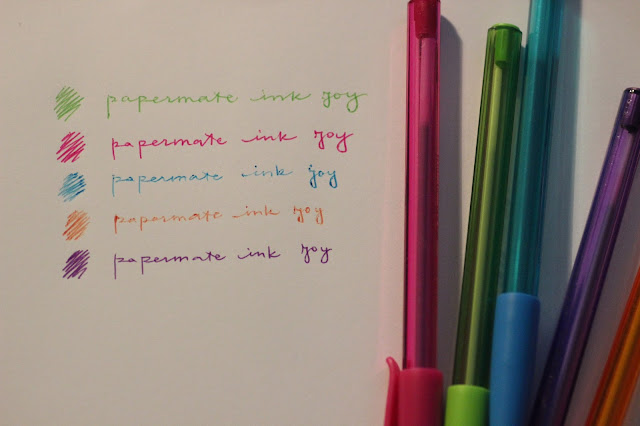 papermate ink joy
papermate ink joy
papermate ink joy
papermate ink joy
papermate ink joy